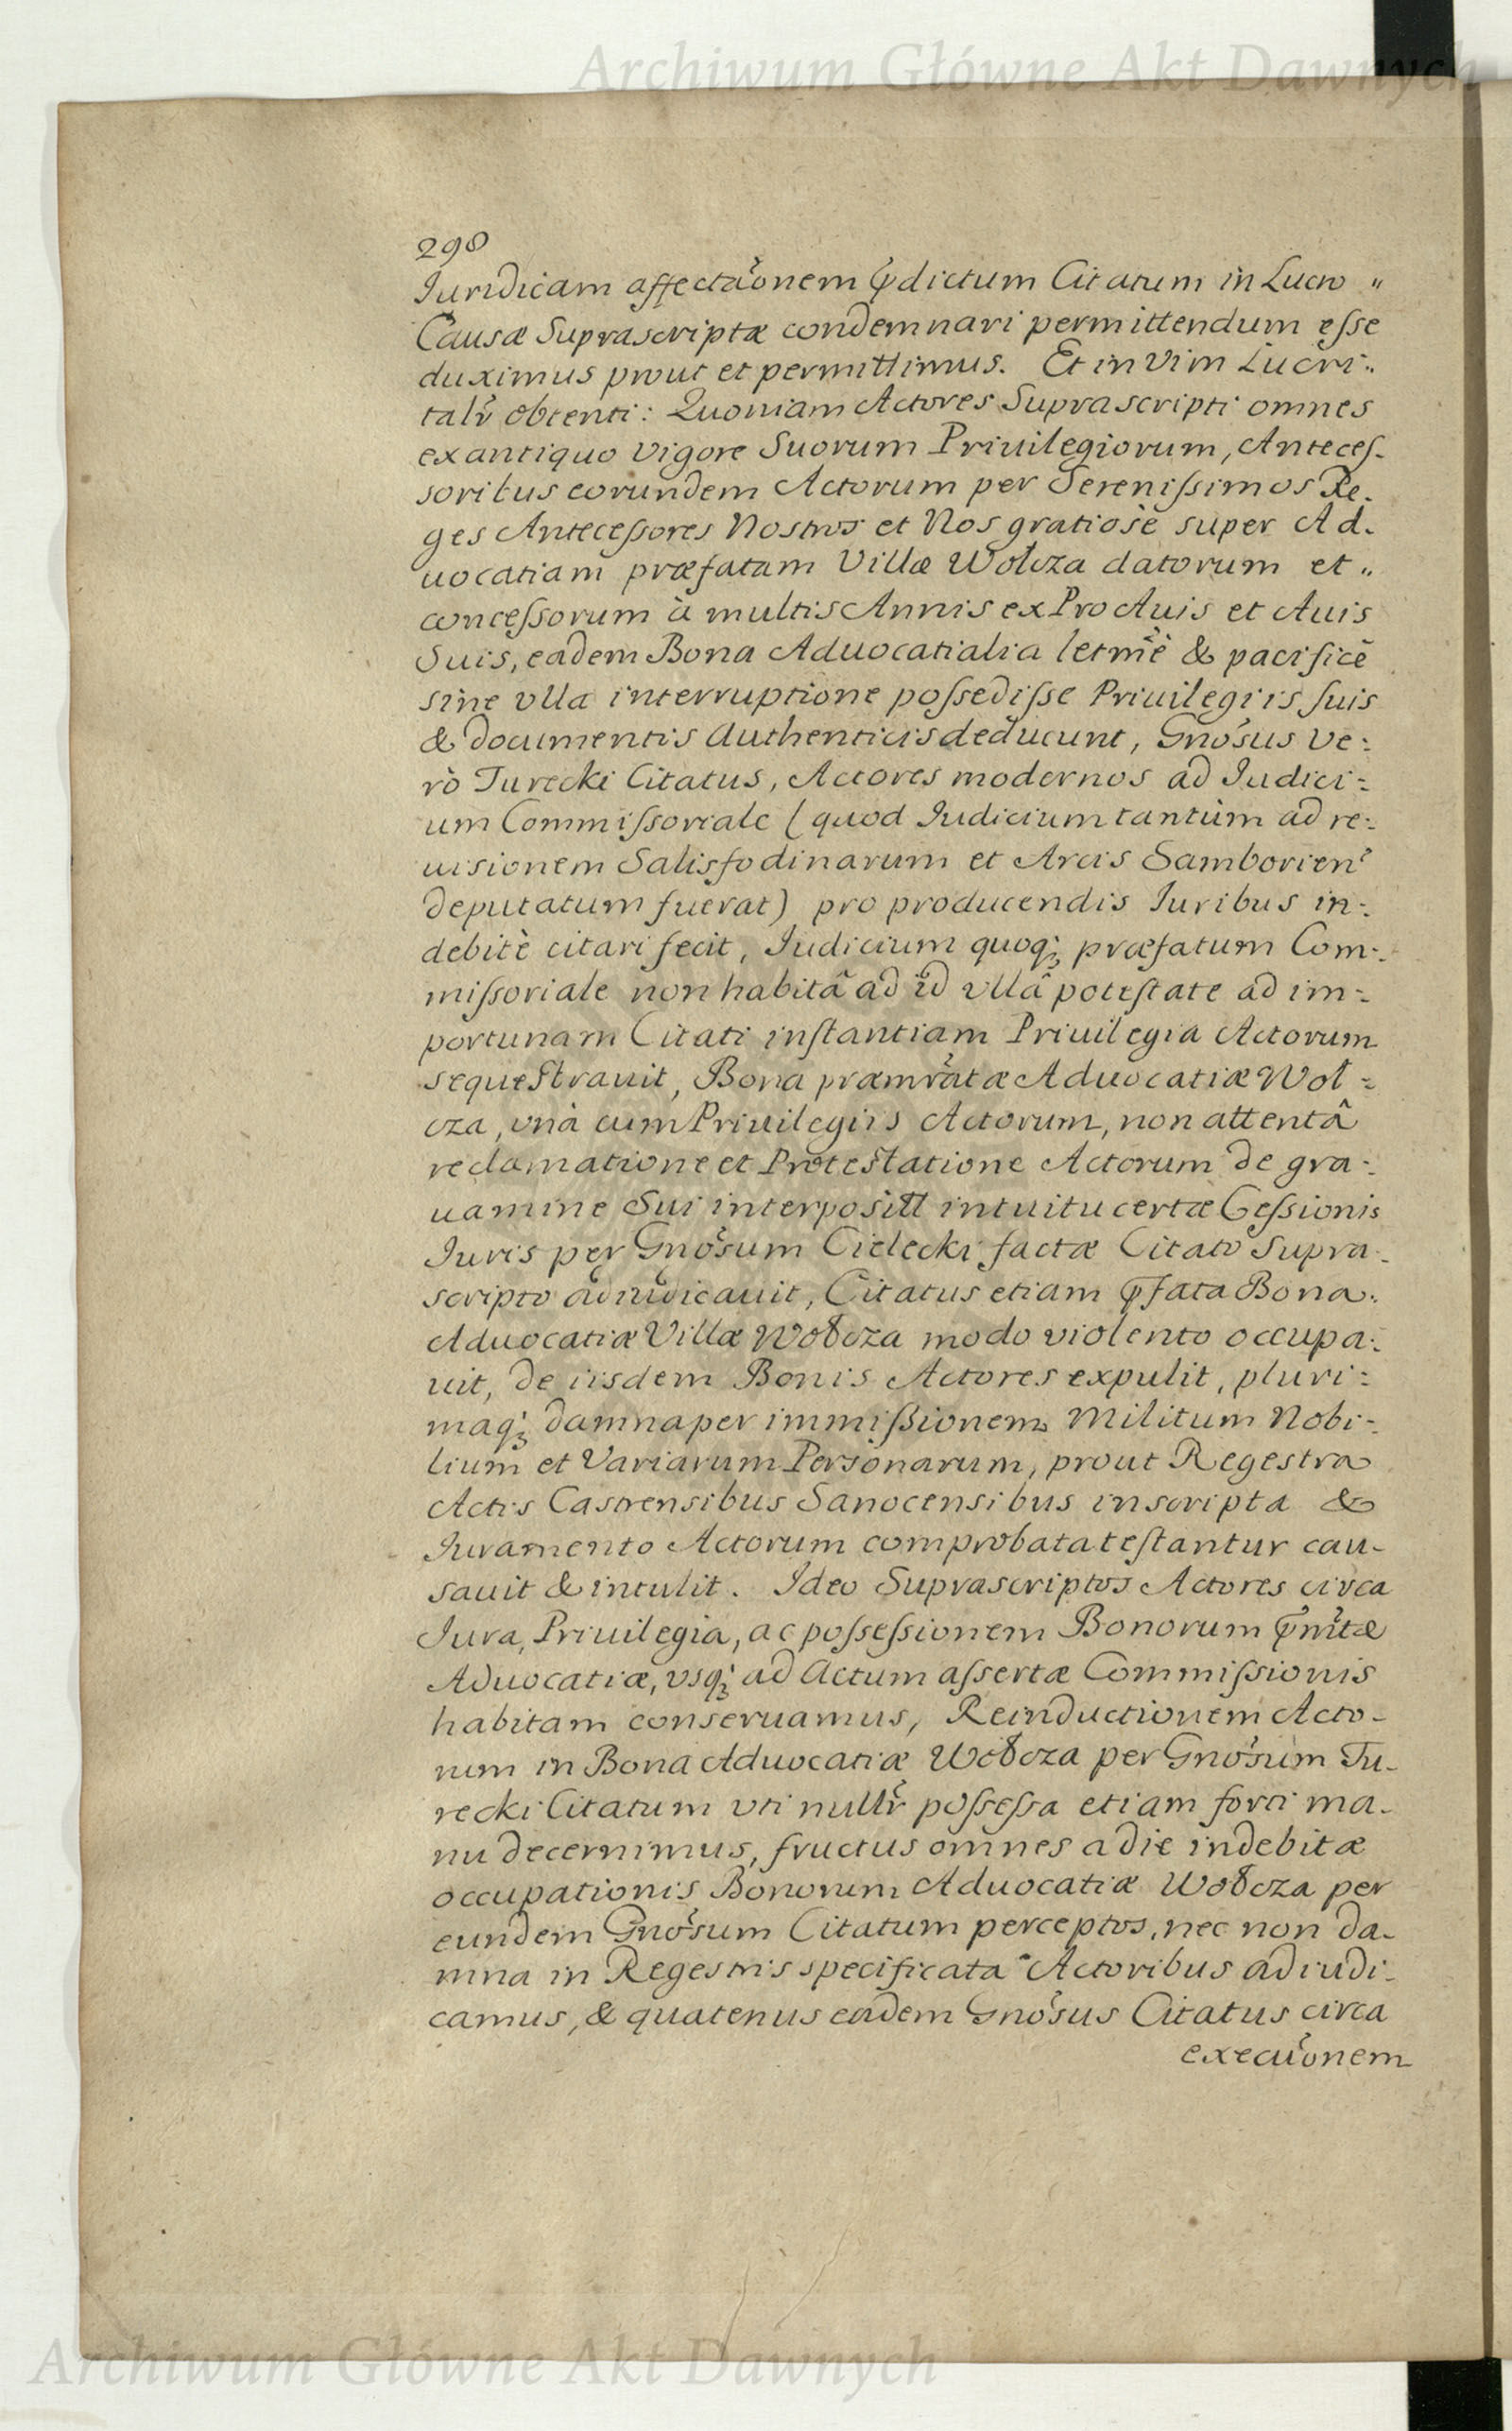 Archiwum Główne Akt Dawnych
298
Iuridicam affectaõnem p̃dictum Citatum in Lucro „
Causæ Suprascriptæ condemnari permittendum eſse
duximus prout et permittimus. Et in Vim Lucri:.
talr̃ obtenti: Quoniam Actores Suprascripti omnes
ex antiquo vigore Suorum Priuilegiorum, Anteceſ-
soribus eorundem Actorum per Sereniſsimos Re.
ges Anteceſsores Nostros et Nos gratiosè super Ad.
uocatiam præfatam Villæ Wołcza datorum et „
conceſsorum à multis Annis ex Pro Auis et Auis
Suis, eadem Bona Aduocatialia letm̃è & pacificè
sine vlla interruptione poſsediſse Priuilegiis ſuis
& documentis Authenticis deducunt, Gnõsus Ve:
rò Turecki Citatus, Actores modernos ad Iudici:
um Commiſsoriale (quod Iudicium tantùm ad re:
uisionem Salisfodinarum et Arcis Samborien̾
deputatum fuerat) pro producendis Iuribus in:
debitè citari fecit, Iudicium quoqꝫ præfatum Com:
miſsoriale non habitâ ad id vllâ poteſtate ad im:
portunam Citati inſtantiam Priuilegia Actorum
sequeſtrauit, Bona præmr̃atæ Aduocatiæ Woł:
cza, vnà cum Priuilegiis Actorum, non attentâ
reclamatione et Proteſtatione Actorum de gra:
uamine Sui interpositi intuitu certæ Ceſsionis
Iuris per Gnõsum Cielecki factæ Citato Supra.
scripto adiudicauit, Citatus etiam p̃fata Bona.
Aduocatiæ Villæ Wołcza modo violento occupa:
uit, de iisdem Bonis Actores expulit, pluri:
maqꝫ damna per immiſsionem Militum Nobi:
lium et Variarum Personarum, prout Regestra
Actis Castrensibus Sanocensibus inscripta &
Iuramento Actorum comprobata teſtantur cau-
sauit & intulit. Ideo Suprascriptos Actores circa
Iura, Priuilegia, ac poſseſsionem Bonorum p̃mr̃tæ
Aduocatiæ, vsqꝫ ad Actum aſsertæ Commiſsionis
habitam conseruamus, Reinductionem Acto-
rum in Bona Aduocatiæ Wołcza per Gnõsum Tu-
recki Citatum vti nullr̃ poſseſsa etiam forti ma.
nu decernimus, fructus omnes a die indebitæ
occupationis Bonorum Aduocatiæ Wołcza per
eundem Gnõsum Citatum perceptos, nec non da-
mna in Regestris specificata Actoribus adiudi-
camus, & quatenus eadem Gnõsus Citatus circa
execuõnem
Archiwum Główne Akt Dawnych